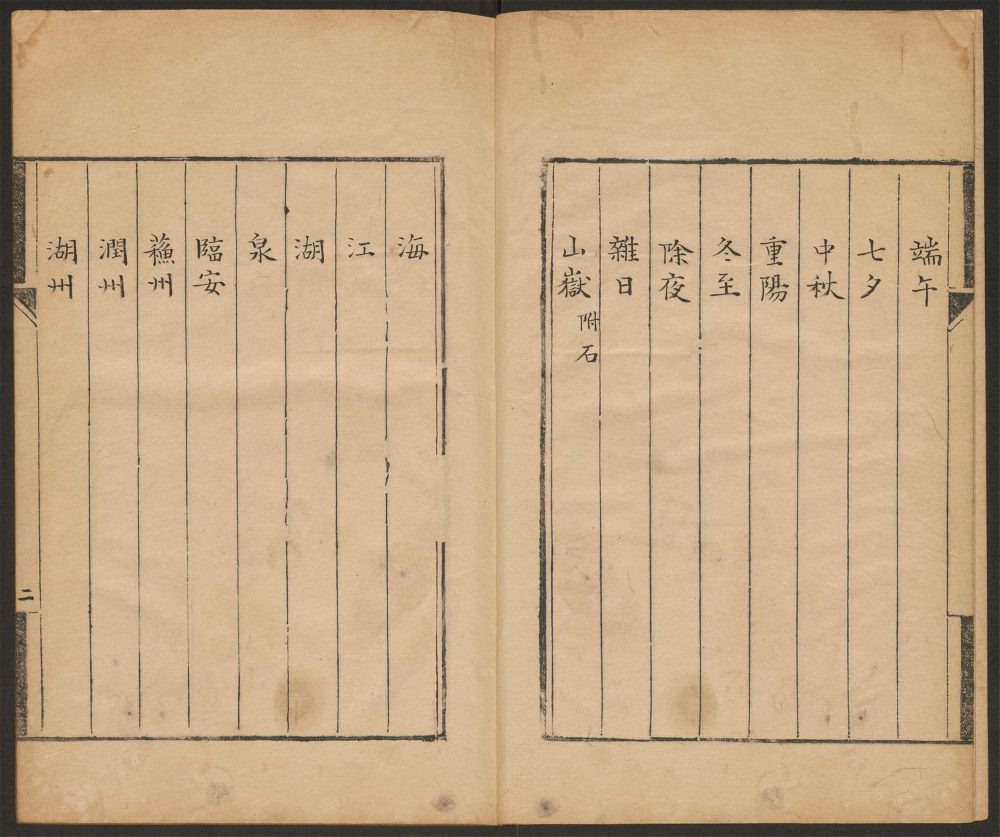 端午
七夕
中秋
重陽
冬至
除夜
雜日
山嶽附石
海
江
湖
泉
臨安
蘓州
潤州
湖州
二